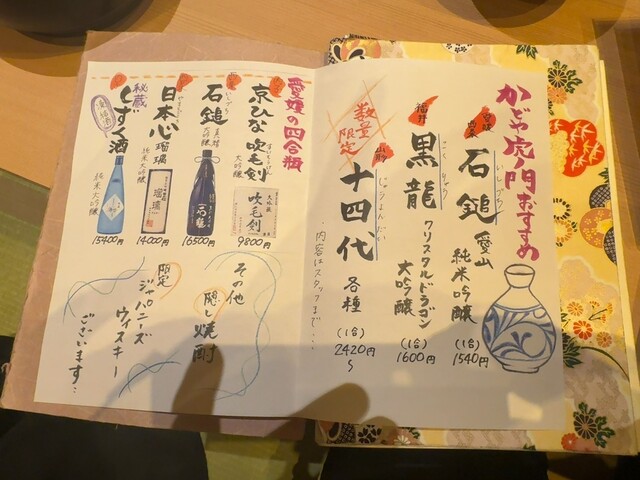 かどや虎ノ門おすすめ
愛媛
西条
石鎚
いしづち
愛山
純米吟醸
(1合)
1540円
福井
黒龍
こくりゅう
クリスタルドラゴン
大吟醸
(1合)
1600円
数量
限定
山形
十四代
じゅうよんだい
各種
(1合)
2420円
〜
・内容はスタッフまで・・・・
愛媛の四合瓶
京ひな 吹毛剣
すいもうけん
大吟醸
吹毛剣
9800円
石鎚
いしづち
真精
大吟醸
16500円
日本心
瑠璃
純米大吟醸
瑠璃
14000円
秘蔵
しずく酒
純米大吟醸
15400円
その他
隠し焼酎
限定
ジャパニーズ
ウイスキー
ございます・・